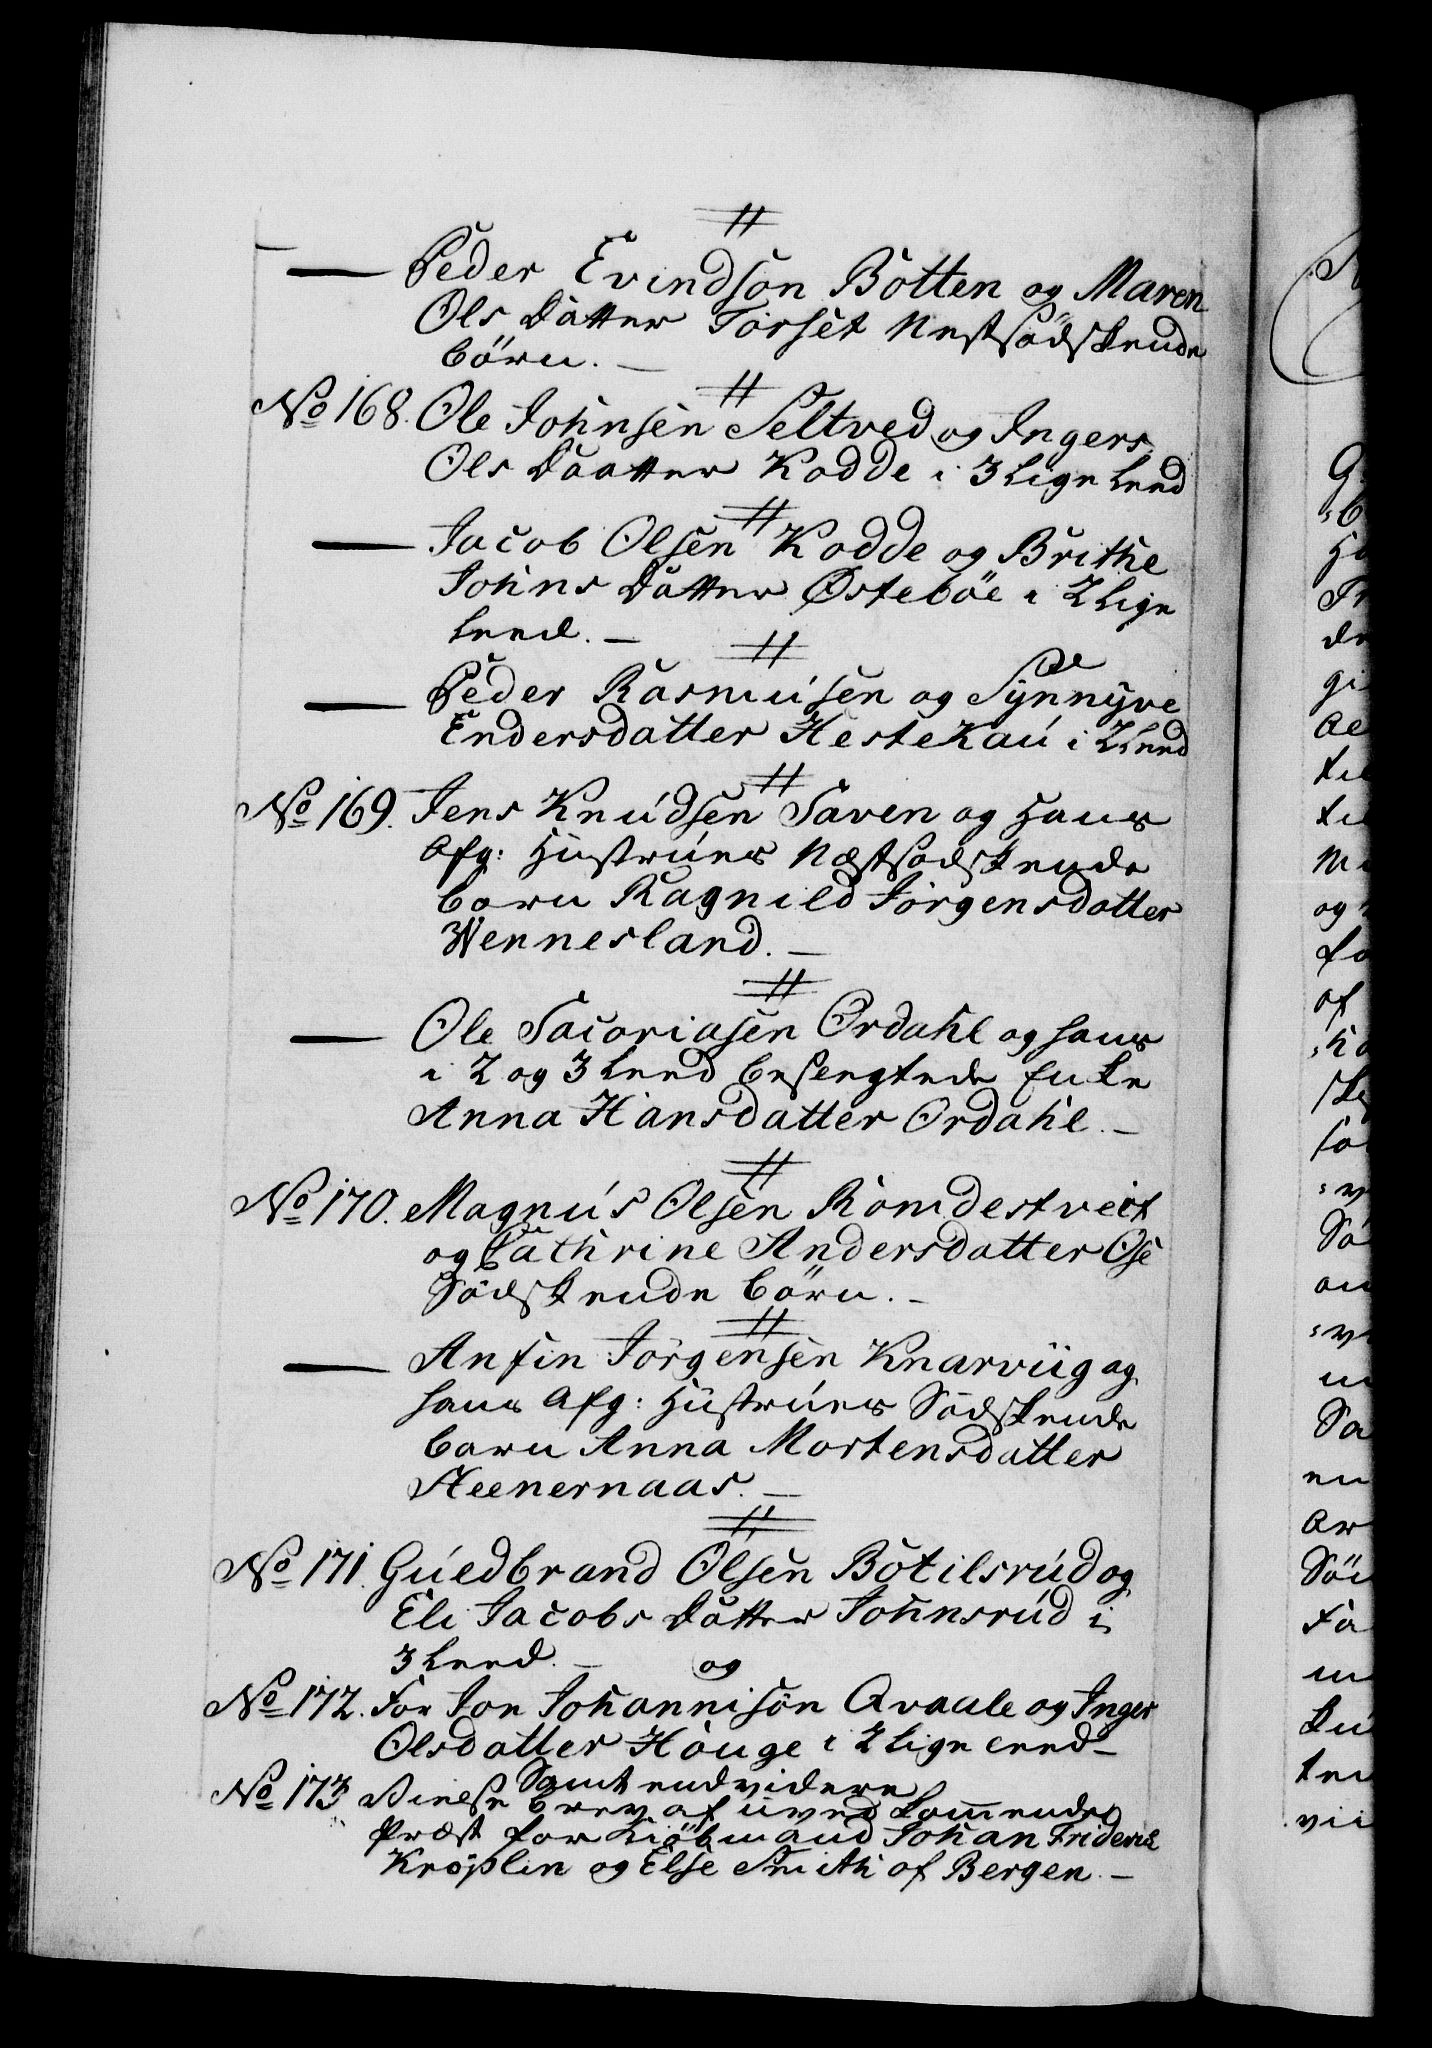 //
— Peder Evindsøn Botten og Maren
Ols Datter Torset Nestsødskende
börn. —
//
No 168. Ole Johnsen Seltved og Ingers
Ols Daatter Kodde i 3 Lige Leed
//
— Jacob Olsen Kodde og Brithe
Johns Datter Østeböe i 2 Lige
Leed. —
//
— Peder Rasmusen og Synnyve
Endersdatter Hestekau i 2 Leed
//
No 169. Jens Knudsen Saven og Hans
Afg: Hustrues Næstsødskende
barn Ragnild Jörgensdatter
Wennesland. —
//
— Ole Sacoriasen Ordahl og hans
i 2 og 3 Leed besvogrede Enke
Anna Hansdatter Ordahl. —
//
No 170. Magnus Olsen Romdestveit
og Cathrine Andersdatter Ose
Södskende börn. —
//
— Anfin Jörgensen Knarviig og
hans Afg: Hustrues Södskende
barn Anna Mortensdatter
Steenernaas. —
//
No 171. Guedbrand Olsen Botilsrud og
Eli Jacobs Datter Johnsrud i
3 Leed. — og
No 172. For Jon Johannisøn Qvaale og Inger
Olsdatter Hauge i 2 Lige Leed —
Samt endvidere
No 173 Vielse brev af uvedkommende
Præst for Kiöbmand Johan Friderich
Kröplin og Else Smith af Bergen. —